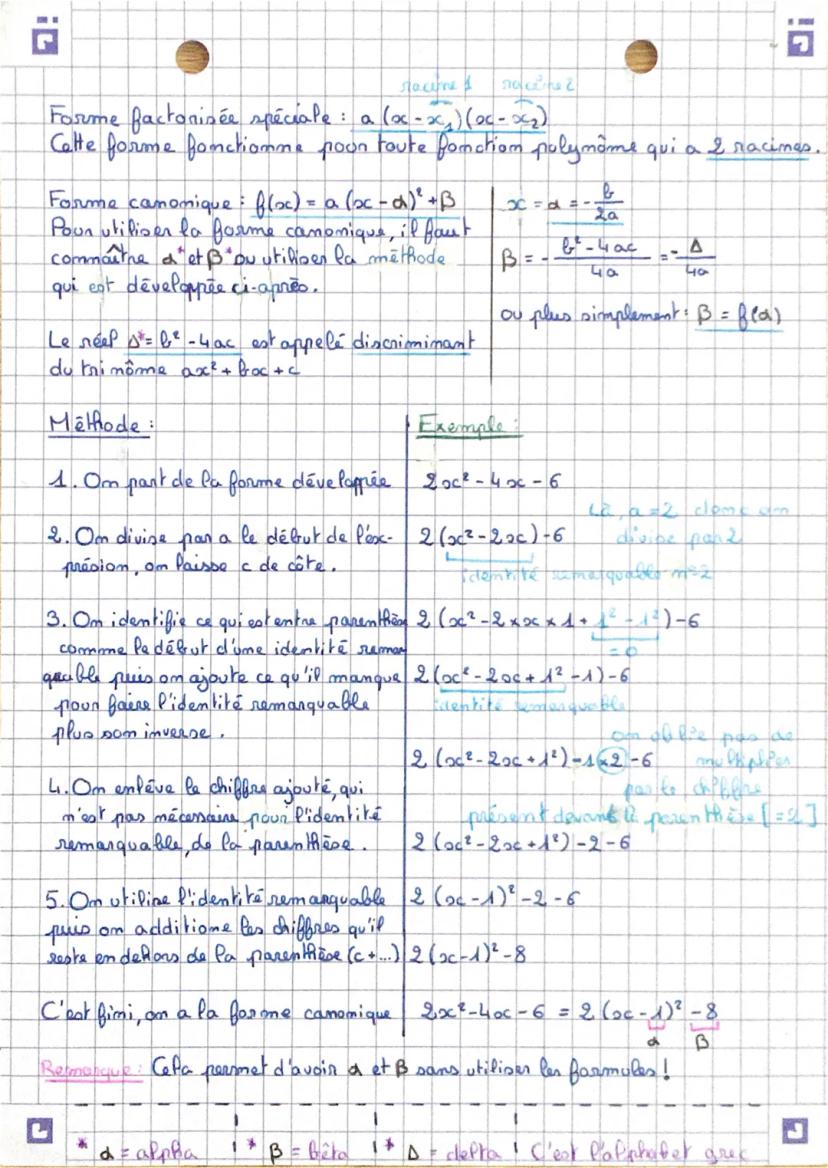 racine 1 racine 2
Forme factorisée spéciale : a (x - x₁)(x - x₂)
Cette forme fonctionne pour toute fonction polynôme qui a 2 racines.
Forme canonique : f(x) = a (x - α)² + β
Pour utiliser la forme canonique, il faut
connaître α* et β* ou utiliser la méthode
qui est développée ci-après.
x = α = - b/2a
β = - (b² - 4ac)/4a = - Δ/4a
ou plus simplement : β = f(α)
Le réel Δ* = b² - 4ac est appelé discriminant
du trinôme ax² + bx + c
Méthode :
Exemple :
1. On part de la forme développée
2x² - 4x - 6
Là, a = 2 donc on
2. On divise par a le début de l'ex-
2 (x² - 2x) - 6
divise par 2
présion, on laisse c de côte.
identité remarquable n°2
3. On identifie ce qui est entre parenthèse
2 (x² - 2 × x × 1 + 1² - 1²) - 6
comme le début d'une identité remar
= 0
quable puis on ajoute ce qu'il manque
2 (x² - 2x + 1² - 1) - 6
pour faire l'identité remarquable
identité remarquable
plus son inverse.
on oblie pas de
2 (x² - 2x + 1²) - 1 × 2 - 6
multiplier
4. On enlève le chiffre ajouté, qui
par le chiffre
n'est pas nécessaire pour l'identité
présent devant la parenthèse [= 2]
remarquable, de la parenthèse.
2 (x² - 2x + 1²) - 2 - 6
5. On utilise l'identité remarquable
2 (x - 1)² - 2 - 6
puis on additione les chiffres qu'il
reste en dehors de la parenthèse (c + ...)
2 (x - 1)² - 8
C'est fini, on a la forme canonique
2x² - 4x - 6 = 2 (x - 1)² - 8
α β
Remarque : Cela permet d'avoir α et β sans utiliser les formules !
* α = alpha * β = bêta * Δ = delta C'est l'alphabet grec